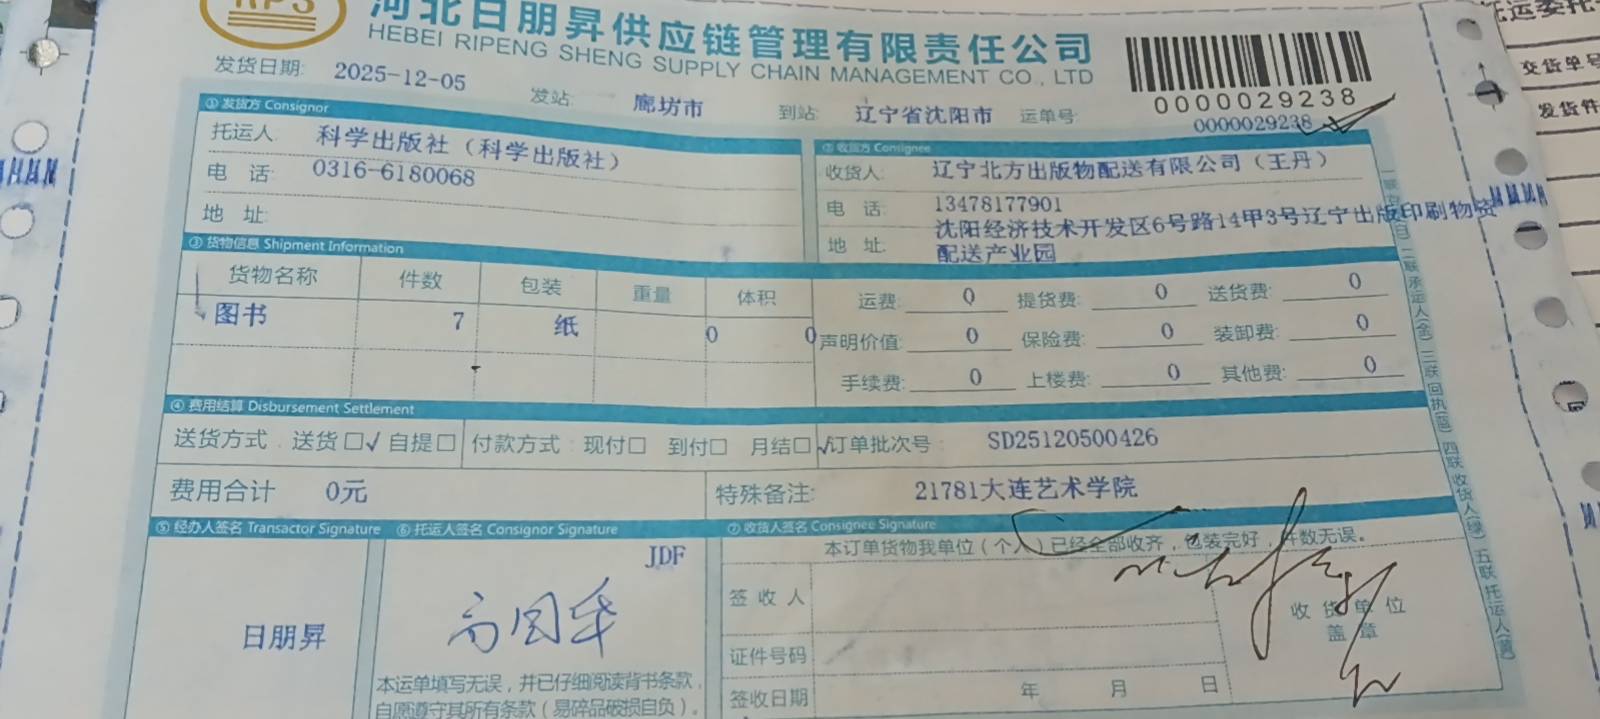 RPS
河北日朋昇供应链管理有限责任公司
HEBEI RIPENG SHENG SUPPLY CHAIN MANAGEMENT CO., LTD
发货日期: 2025-12-05 发站: 廊坊市 到站: 辽宁省沈阳市 运单号:
0000029238
0000029238
①发货方 Consignor
托运人: 科学出版社（科学出版社）
电 话: 0316-6180068
地 址:
②收货方 Consignee
收货人: 辽宁北方出版物配送有限公司（王丹）
电 话: 13478177901
地 址: 沈阳经济技术开发区6号路14甲3号辽宁出版印刷物资
配送产业园
③货物信息 Shipment Information
货物名称 件数 包装 重量 体积
图书 7 纸 0 0
运费: 0 提货费: 0 送货费: 0
声明价值: 0 保险费: 0 装卸费: 0
手续费: 0 上楼费: 0 其他费: 0
④费用结算 Disbursement Settlement
送货方式: 送货☐√ 自提☐ 付款方式: 现付☐ 到付☐ 月结☐√ 订单批次号: SD25120500426
费用合计 0元 特殊备注: 21781大连艺术学院
⑤经办人签名 Transactor Signature ⑥托运人签名 Consignor Signature ⑦收货人签名 Consignee Signature
日朋昇
JDF
本运单填写无误，并已仔细阅读背书条款，
自愿遵守其所有条款（易碎品破损自负）。
本订单货物我单位（个人）已经全部收齐，包装完好，件数无误。
签 收 人
证件号码
签收日期 年 月 日
收 货 单 位
盖 章
二联 承运人(金) 三联 回执(蓝) 四联 收货人(绿) 五联 托运人(黄)
托运委托
交货单号
发货件